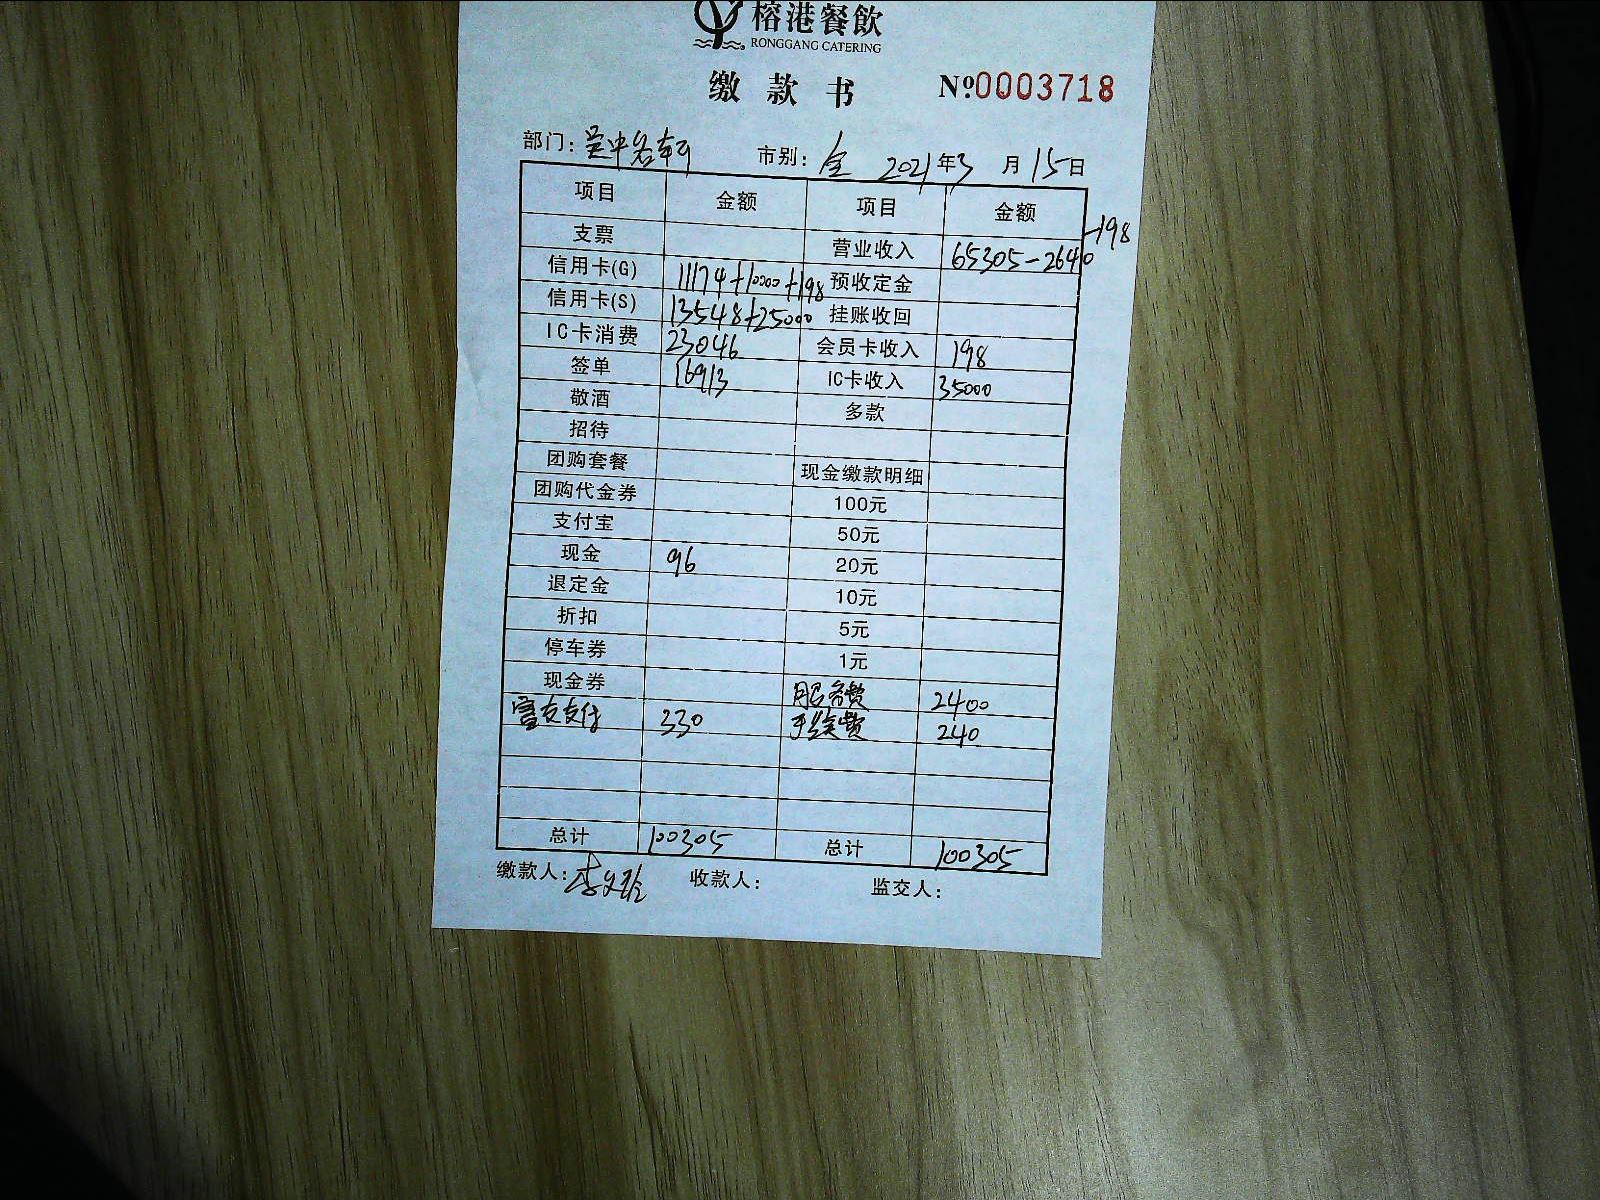 榕港餐飲
RONGGANG CATERING
缴款书 №0003718
部门: 吴中名轩 市别: 全 2021年3月15日
项目 金额 项目 金额
支票 营业收入 65305-2640-198
信用卡(G) 11174+10000+198 预收定金
信用卡(S) 13548+25000 挂账收回
IC卡消费 23046 会员卡收入 198
签单 16913 IC卡收入 35000
敬酒 多款
招待
团购套餐 现金缴款明细
团购代金券 100元
支付宝 50元
现金 96 20元
退定金 10元
折扣 5元
停车券 1元
现金券 服务费 2400
富友支付 330 手续费 240
总计 100305 总计 100305
缴款人: 收款人: 监交人: